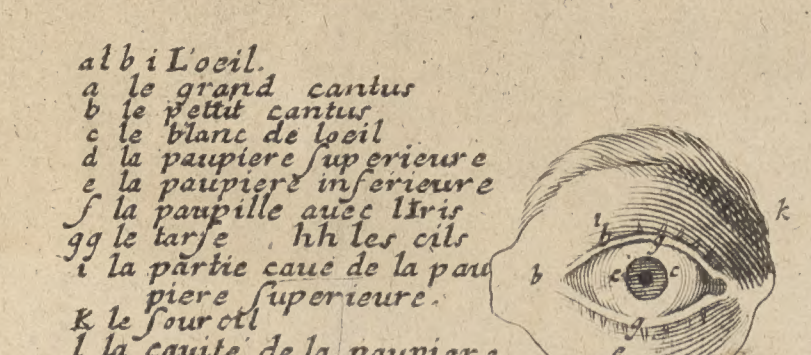 alb i L'oeil.
a le grand cantus
b le pettit cantus
c le blanc de loeil
d la paupiere ſuperieure
e la paupiere inferieure
f la paupille auec lIris
gg le tarſe hh les cils
i la partie caue de la pau
piere ſuperieure.
K le ſourcil
l la cauité de la paupiere
k
b
c
c
g